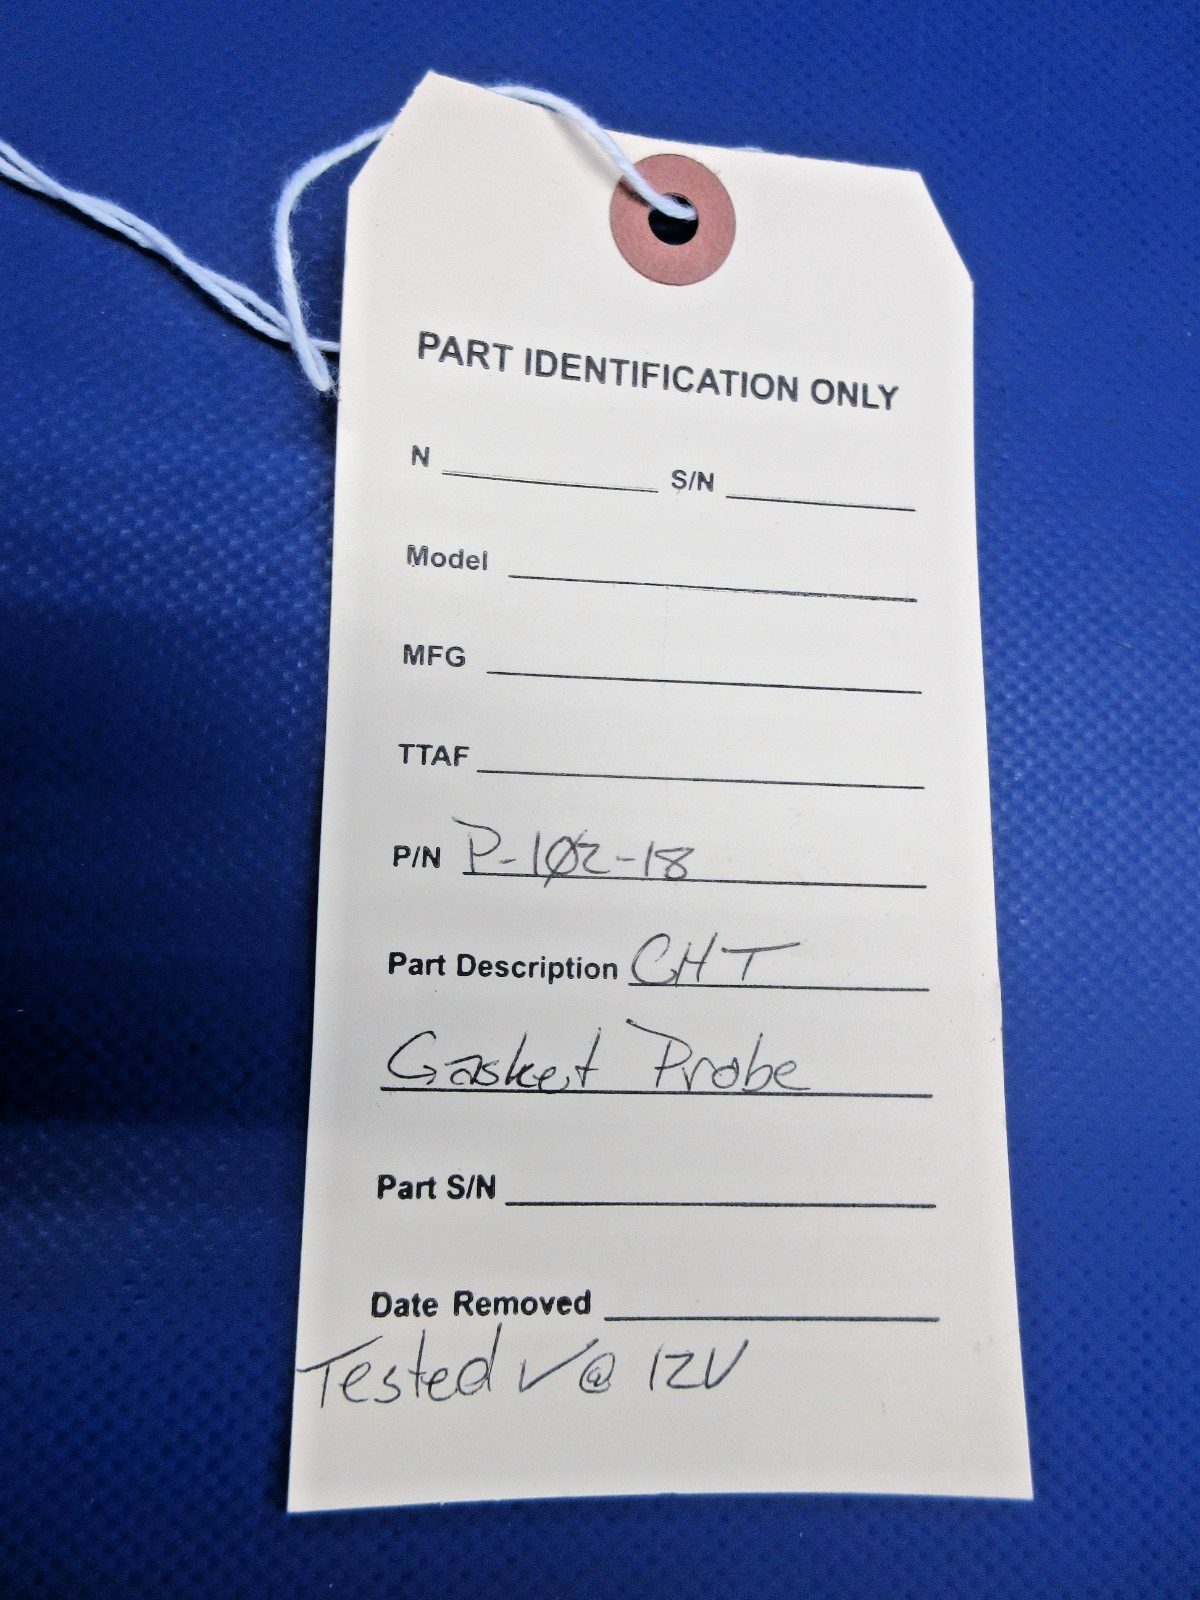 PART IDENTIFICATION ONLY
N S/N
Model
MFG
TTAF
P/N P-1Ø2-18
Part Description CHT
Gasket Probe
Part S/N
Date Removed
Tested ✓@ 12V